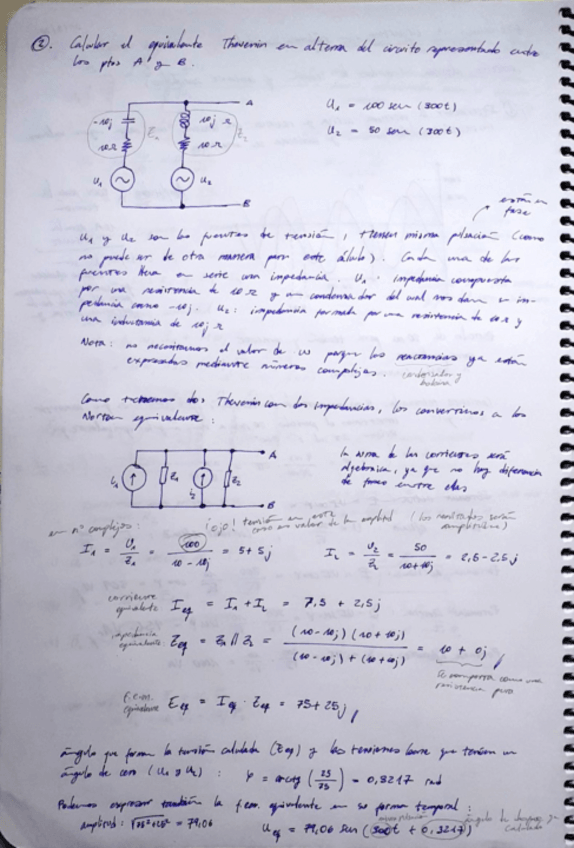 ②. Calcular el equivalente Thevenin en alterna del circuito representado entre
los ptos A y B.
A
-10j
10j Ω
10Ω
10Ω
Z₁
Z₂
U₁
U₂
B
U₁ = 100 sen (300t)
U₂ = 50 sen (300t)
están en
fase
U₁ y U₂ son las fuentes de tensión, tienen misma pulsación (como
no puede ser de otra manera para este cálculo). Cada una de las
fuentes lleva en serie una impedancia. U₁: impedancia compuesta
por una resistencia de 10Ω y un condensador del cual nos dan su im-
pedancia como -10j. U₂: impedancia formada por una resistencia de 10Ω y
una inductancia de 10j Ω
Nota: no necesitamos el valor de ω porque las reactancias ya están
expresadas mediante números complejos.
condensador y
bobina
Como tenemos dos Thevenin con dos impedancias, los convertimos a los
Norton equivalente:
A
I₁
Z₁
I₂
Z₂
B
la suma de las corrientes será
algebraica, ya que no hay diferencia
de fases entre ellas
en nº complejos:
¡ojo! tensión en este
caso es valor de la amplitud (los resultados serán
amplitudes)
I₁ = U₁/Z₁ = 100/(10-10j) = 5+5j
I₂ = U₂/Z₂ = 50/(10+10j) = 2,5-2,5j
corriente
equivalente I_eq = I₁+I₂ = 7,5 + 2,5j
impedancia
equivalente: Z_eq = Z₁ // Z₂ = (10-10j)(10+10j)/((10-10j)+(10+10j)) = 10 + 0j
se comporta como una
resistencia pura
f.e.m.
equivalente E_eq = I_eq · Z_eq = 75+25j
ángulo que forman la tensión calculada (E_eq) y las tensiones base que tenían un
ángulo de cero (U₁ y U₂): φ = arctg (25/75) = 0,3217 rad
Podemos expresar también la f.em. equivalente en su forma temporal:
amplitud: √75²+25² = 79,06
U_eq = 79,06 sen (300t + 0,3217)
misma pulsación
ángulo de desfase ya
calculado